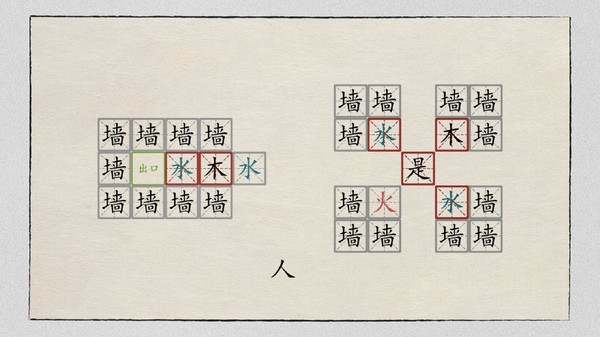 墙墙墙墙
墙出口水木水
墙墙墙墙
墙墙 墙墙
墙水 木墙
是
墙火 水墙
墙墙 墙墙
人